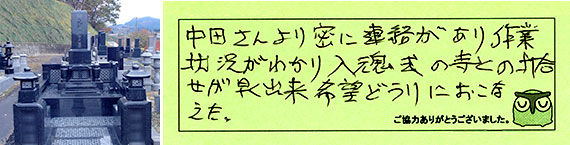 中田さんより密に連絡があり作業
状況がわかり入魂式の寺との打合
せが早出来希望どうりにおこな
えた。
ご協力ありがとうございました。